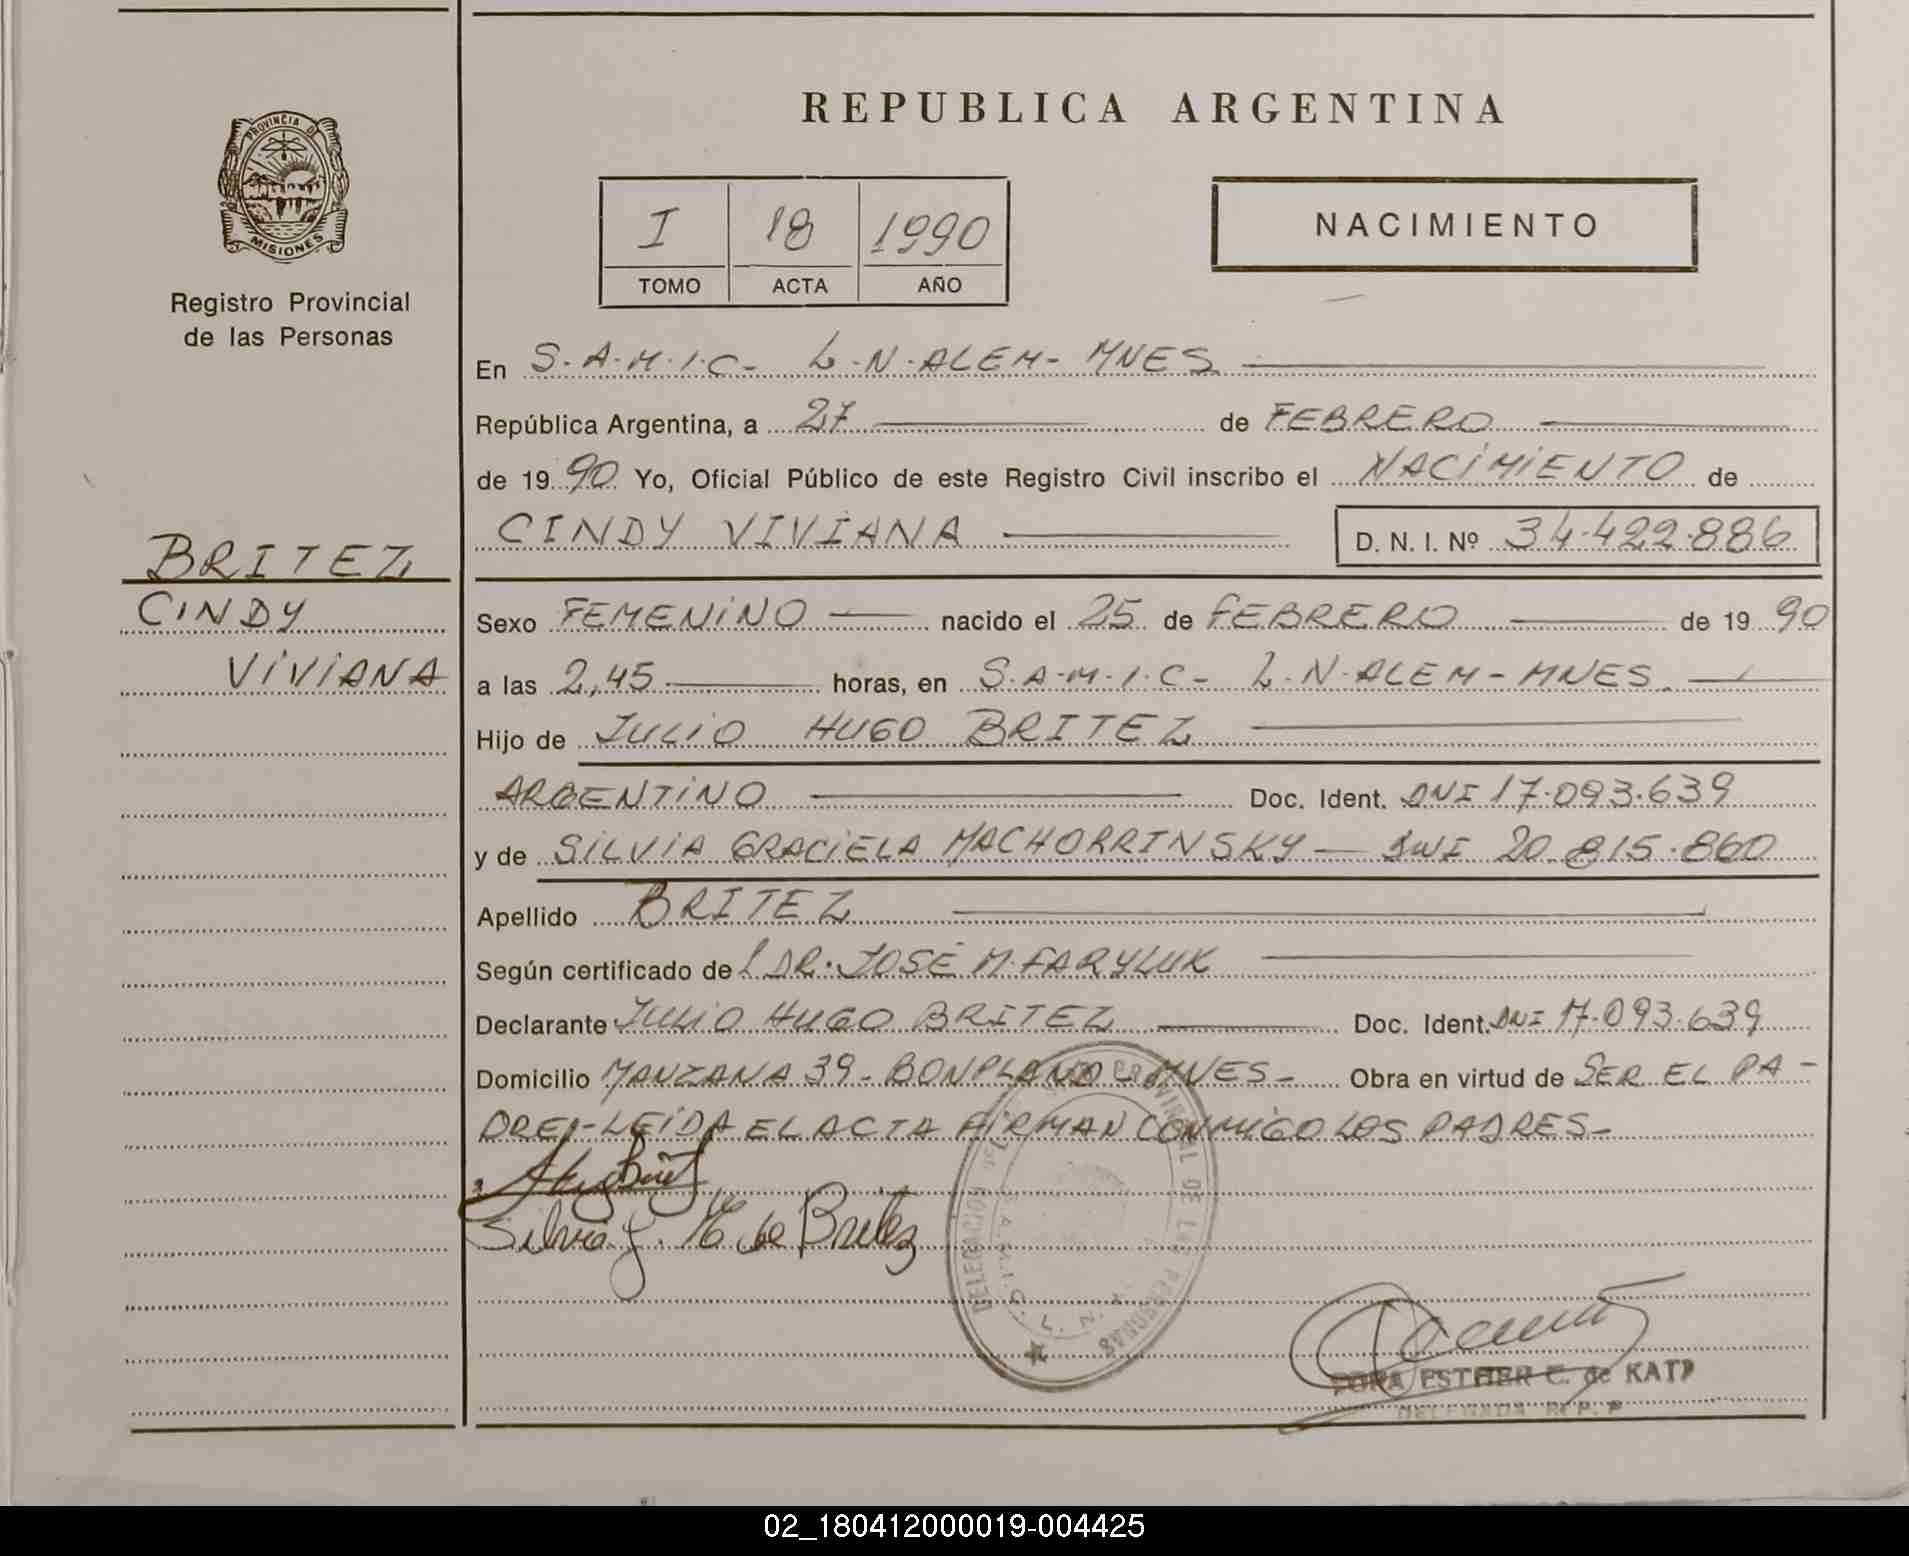 REPUBLICA ARGENTINA
PROVINCIA DE
MISIONES
Registro Provincial
de las Personas
I 18 1990
TOMO ACTA AÑO
NACIMIENTO
En S.A.M.I.C- L.N.ALEM- MNES
República Argentina, a 27 de FEBRERO
de 1990 Yo, Oficial Público de este Registro Civil inscribo el NACIMIENTO de
CINDY VIVIANA D. N. I. Nº 34.422.886
BRITEZ
CINDY
VIVIANA
Sexo FEMENINO nacido el 25 de FEBRERO de 1990
a las 2,45 horas, en S.A.M.I.C- L.N.ALEM-MNES.
Hijo de JULIO HUGO BRITEZ
ARGENTINO Doc. Ident. DNI 17.093.639
y de SILVIA GRACIELA MACHORRINSKY- DNI 20.815.860
Apellido BRITEZ
Según certificado de DR. JOSE M. FARYLUK
Declarante JULIO HUGO BRITEZ Doc. Ident. DNI 17.093.639
Domicilio MANZANA 39- BONPLAND- MNES- Obra en virtud de SER EL PA-
DRE,-LEIDA EL ACTA FIRMAN CONMIGO LOS PADRES-
Silvia G. M de Britez
PROVINCIAL DE LAS PERSONAS
DELEGACION
S.A.M.I.C. L.N.
ESTHER E. de KATZ
DELEGADA R. P. P.
02_180412000019-004425